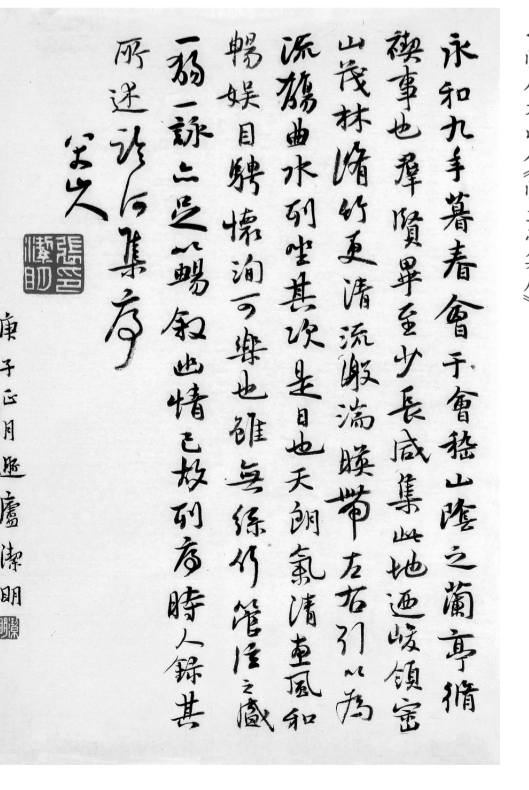 永和九年暮春會于會稽山陰之蘭亭脩
禊事也羣賢畢至少長咸集此地迺峻領崈
山茂林脩竹更清流激湍暎帶左右引以為
流觴曲水列坐其次是日也天朗氣清惠風和
暢娛目騁懷洵可樂也雖無絲竹管弦之盛
一觴一詠亦足以暢敘幽情已故列序時人錄其
所述臨河集序
八大山人
張印潔明
庚子正月遯廬潔明